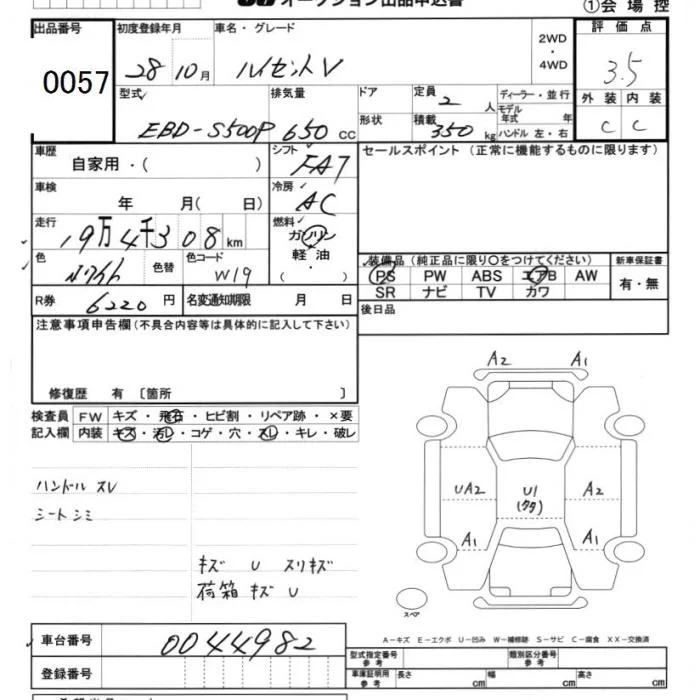 オークション出品申込書
①会場控
出品番号 初度登録年月 車名・グレード 2WD・4WD 評価点
0057 28 10月 ハイゼットV 3.5
型式 排気量 ドア 定員 ディーラー・並行 外装 内装
EBD-S500P 650cc 2人 モデル年式 年 C C
形状 積載 350kg ハンドル 左・右
車歴 シフト セールスポイント(正常に機能するものに限ります)
自家用・( ) FA7
車検 冷房
年 月( 日) AC
走行 燃料
19万4千308km ガソリン
軽油
・( )
色 色替 色コード 装備品(純正品に限り○をつけてください) 新車保証書
ホワイト W19 PS PW ABS エアB AW 有・無
SR ナビ TV カワ
R券 6220円 名変通知期限 月 日 後日品
注意事項申告欄(不具合内容等は具体的に記入して下さい)
修復歴 有 〔箇所 〕
検査員 FW キズ・飛石・ヒビ割・リペア跡・×要
記入欄 内装 キズ・汚レ・コゲ・穴・スレ・キレ・破レ
ハンドル スレ
シート シミ
キズ U スリキズ
荷箱 キズ U
A2 A1
UA2 U1 A2
(クタ)
A1 A1
スペア
A-キズ E-エクボ U-凹み W-補修跡 S-サビ C-腐食 XX-交換済
車台番号 0044982
型式指定番号 参考 類別区分番号 参考
登録番号 車庫証明用 参考 長さ cm 幅 cm 高さ cm